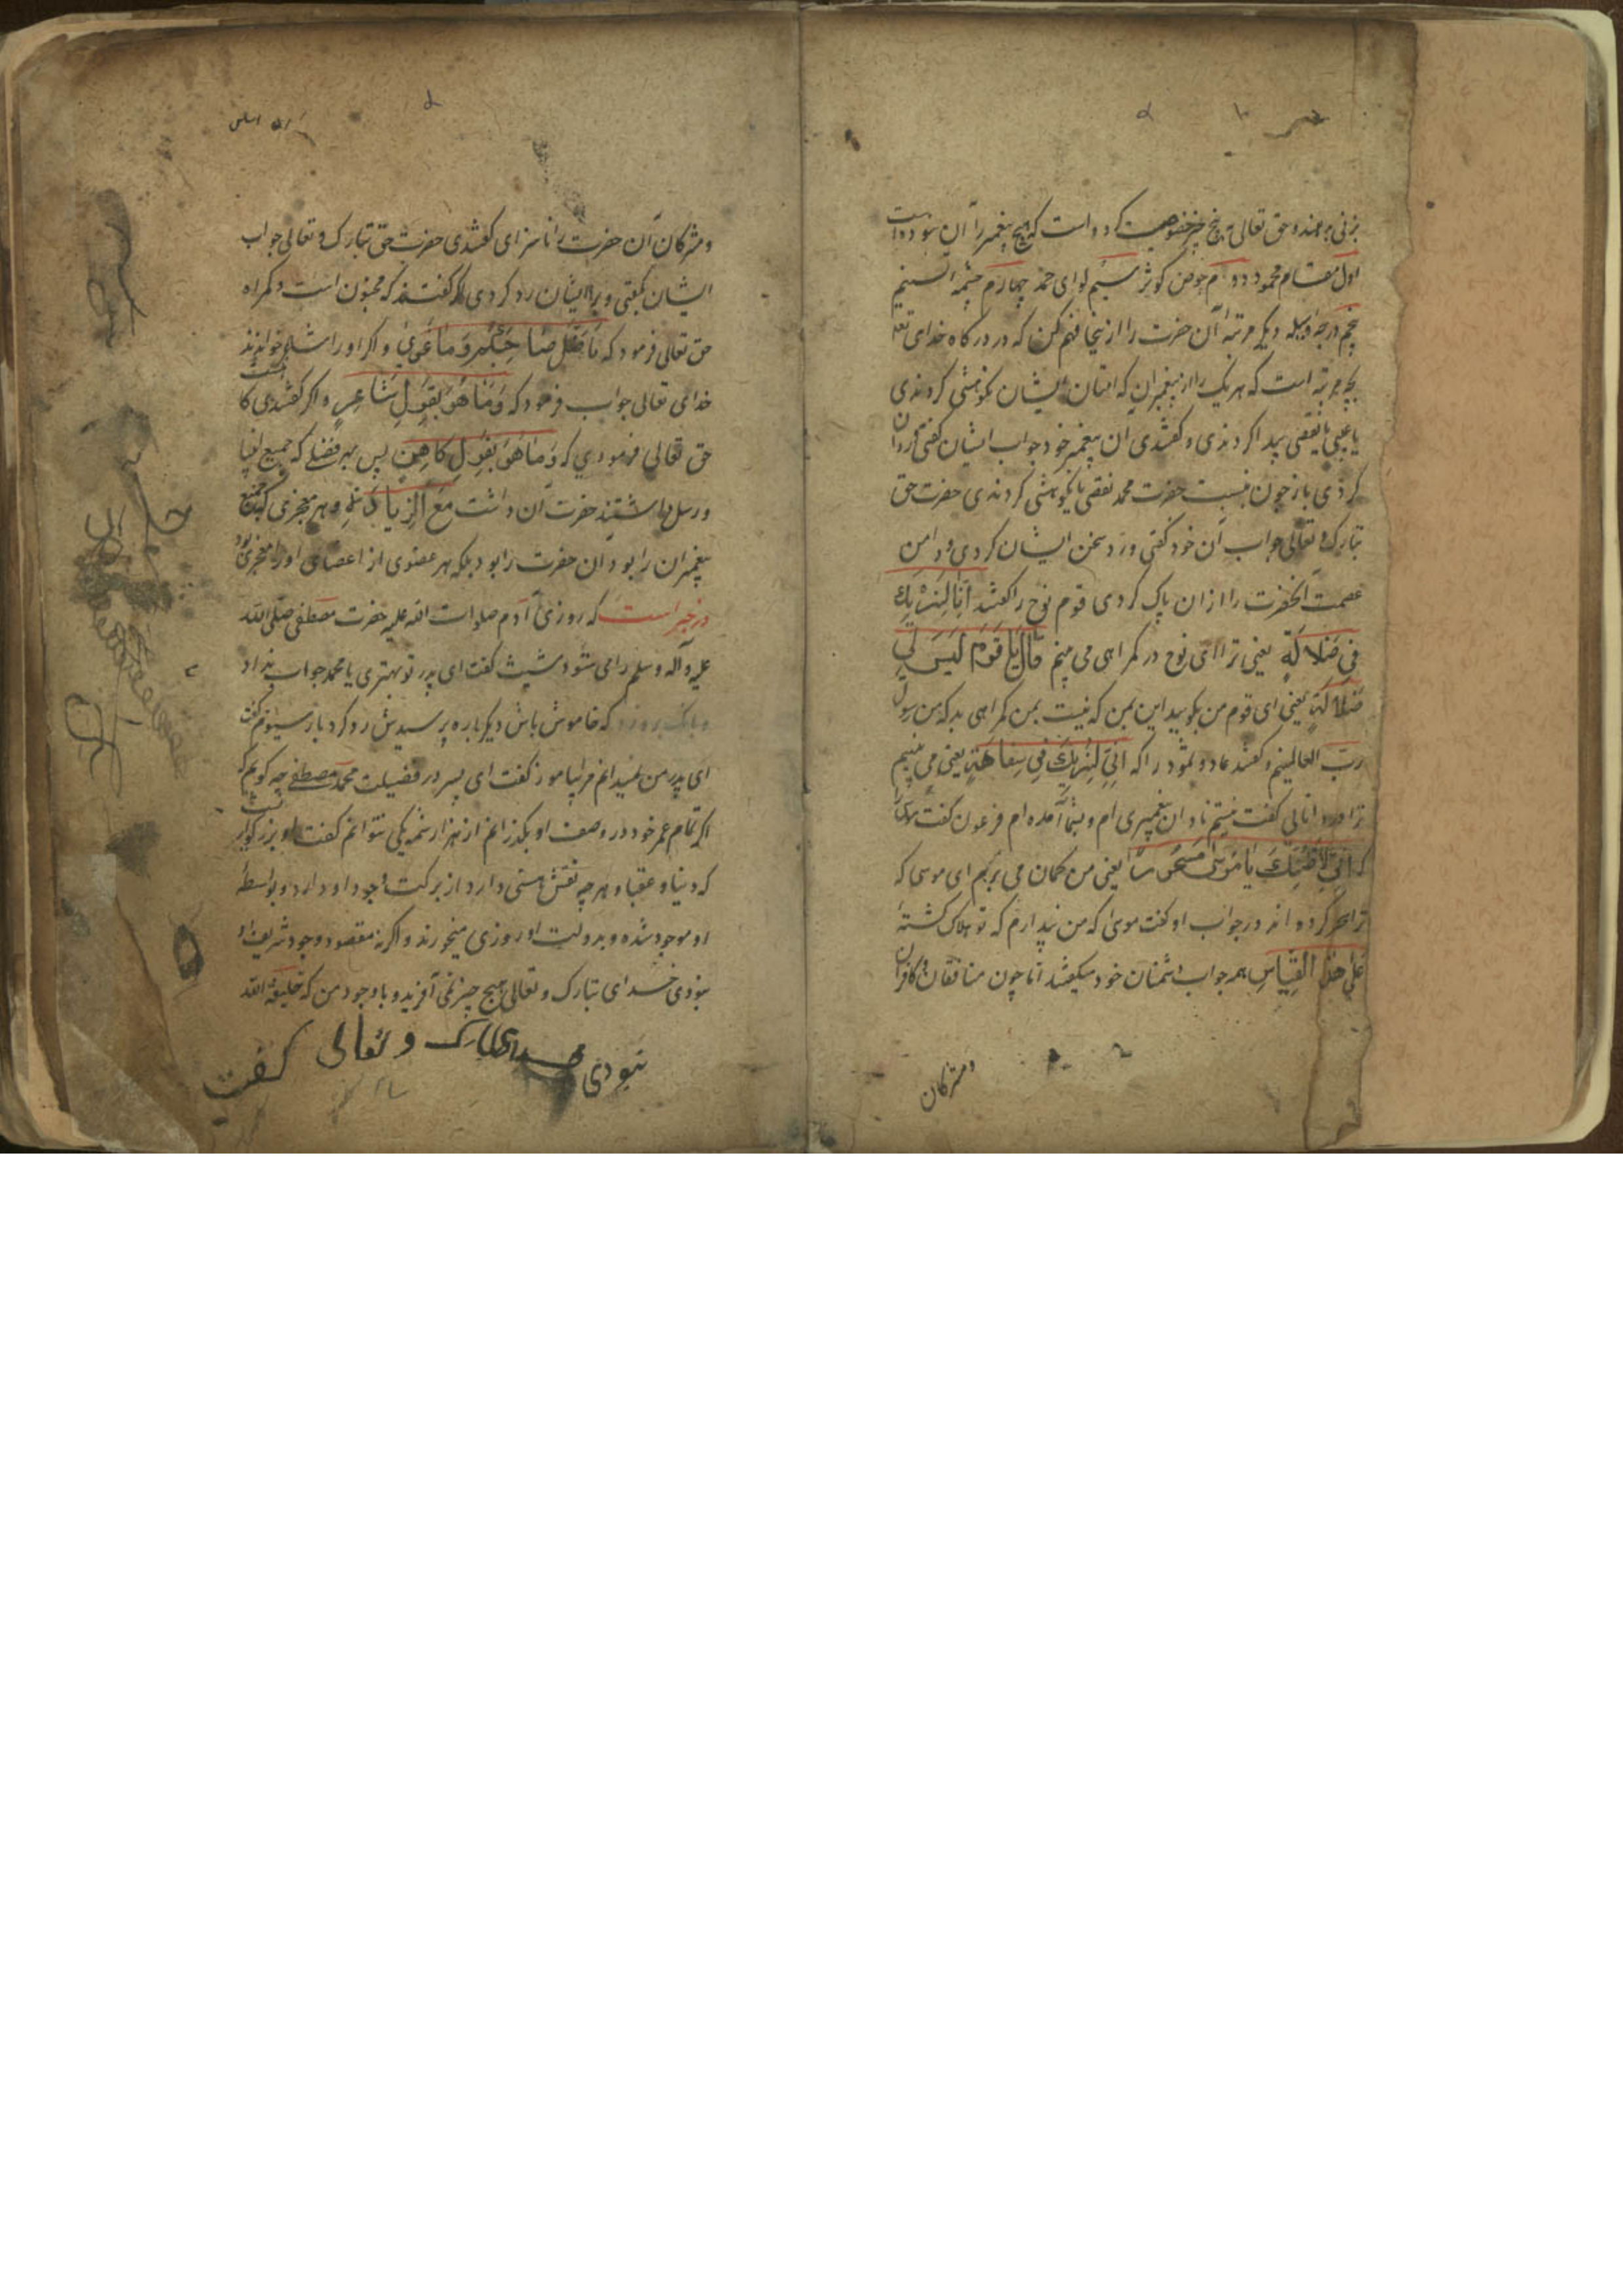 بزنی برهند و حق تعالی به پنج چیز خصوصیت کرده است که هیچ پیغمبر را آن نبوده است
اول مقام محمود دوم حوض کوثر سیم لوای حمد چهارم چشمه تسنیم
پنجم درجه وسیله دیگر مرتبه آن حضرت را از ینجا فهم کن که در درکاه خدای تعالی
بچه مرتبه است که هر یک را از پیغمبران که امتان ایشان نکوهشی کردندی
یا عیبی یا نقصی پیدا کردندی و گفتندی ان پیغمبر خود جواب ایشان گفتی و رد آن
کردی باز چون نسبت حضرت محمد نقصی یا نکوهشی کردندی حضرت حق
تبارک و تعالی جواب آن خود گفتی و رد سخن ایشان کردی و دامن
عصمت آنحضرت را از ان پاک کردی قوم نوح را گفتند اِنّا لَنَریٰكَ
فی ضَلالَةٍ یعنی ترا ای نوح در کمراهی می بینم قالَ یا قَوْمِ لَیسَ بی
ضَلالَةٌ یعنی ای قوم من بکوبید این بمن که نیست بمن کمراهی بدکه من رسول
ربّ العالمینم و گفتند عاد و ثمود را که انّی لَنَریٰكَ فی سِفاهَةٍ یعنی می بینیم
ترا در نادانی گفت نیستم نادان پیغمبری ام و بشما آمده ام فرعون گفت موسی را
که اِنّی لَاَظُنُّكَ یا مُوسیٰ مَسحُوراً یعنی من کمان می بریم ای موسی که
ترا سحر کرده اند در جواب او گفت موسی که من پندارم که تو هلاک کشته
عَلیٰ هذَا القِیاسِ هم جواب دشمنان خود میکفتند اما چون منافقان و کافران
و مشرکان
و مشرکان آن حضرت را ناسزای گفتندی حضرت حق تبارک و تعالی جواب
ایشان گفتی و بر ایشان رد کردی اگر گفتند که مجنون است و کمراه
حق تعالی فرمود که مَا ضَلَّ صَاحِبُکُم وَمَا غَوی و اکر او را شاعر خواندند
خدای تعالی جواب فرمود که وَمَا هُوَ بِقَولِ شَاعِرٍ و اکر گفتندی کاهنست
حق تعالی فرمودی که وَمَا هُوَ بِقَولِ کَاهِنٍ پس هر فضلی که جمیع انبیا
و رسل داشتند حضرت آن داشت مَعَ الزِّیادَةِ و هر معجزی که جمیع
پیغمبران را بود ان حضرت را بود بلکه هر عضوی از اعضای او را معجزی بود
در خبر است که روزی آدم صلوات الله علیه حضرت مصطفی صلی الله
علیه و آله و سلم را می ستود شیث گفت ای پدر تو بهتری یا محمد جواب نداد
و بانک برو زد که خاموش باش دیکر باره پرسیدش رد کرد بار سیوم گفت
ای پدر من نمیدانم مرا بیاموز گفت ای پسر در فضیلت محمد مصطفی چه کویم که
اکر تمام عمر خود در وصف او بگذرانم از هزار شمه یکی نتوانم گفت او بزرکوار نیست
که دنیا و عقبا و هر چه نقش هستی دارد از برکت وجود او دارد و بواسطه
او موجود شده و بدولت او روزی میخورند و اکر نه مقصود وجود شریف او
نبودی خدای تبارک و تعالی هیچ چیز نمی آفرید و با وجود من که خلیفة الله
نبودی خدای تبارک و تعالی گفت